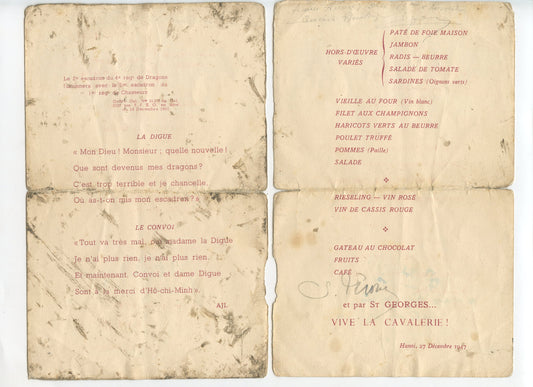 Le 2e escadron du 4e regt de Dragons
fusionnera avec le 2me escadron du
1er regt de Chasseurs
LA DIGUE
« Mon Dieu ! Monsieur ; quelle nouvelle !
Que sont devenus mes dragons ?
C'est trop terrible et je chancelle,
Où as-t-on mis mon escadron ? »
LE CONVOI
« Tout va très mal, pour madame la Digue
Je n'ai plus rien, je n'ai plus rien.
Et maintenant, Convoi et dame Digue
Sont à la merci d'Hô-chi-Minh ».
AJL
HORS-D'ŒUVRE
VARIÉS
PATÉ DE FOIE MAISON
JAMBON
RADIS — BEURRE
SALADE DE TOMATE
SARDINES (Oignons verts)
VIEILLE AU FOUR (Vin blanc)
FILET AUX CHAMPIGNONS
HARICOTS VERTS AU BEURRE
POULET TRUFFÉ
POMMES (Paille)
SALADE
RIESELING — VIN ROSÉ
VIN DE CASSIS ROUGE
GATEAU AU CHOCOLAT
FRUITS
CAFÉ
et par St GEORGES...
VIVE LA CAVALERIE !
Hanoi, 27 Décembre 1947